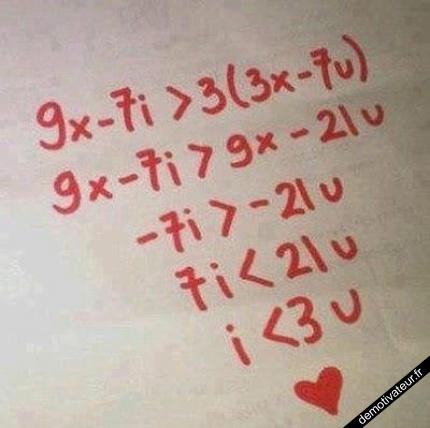 9x-7i > 3(3x-7u)
9x-7i > 9x-21u
-7i > -21u
7i < 21u
i < 3u
demotivateur.fr